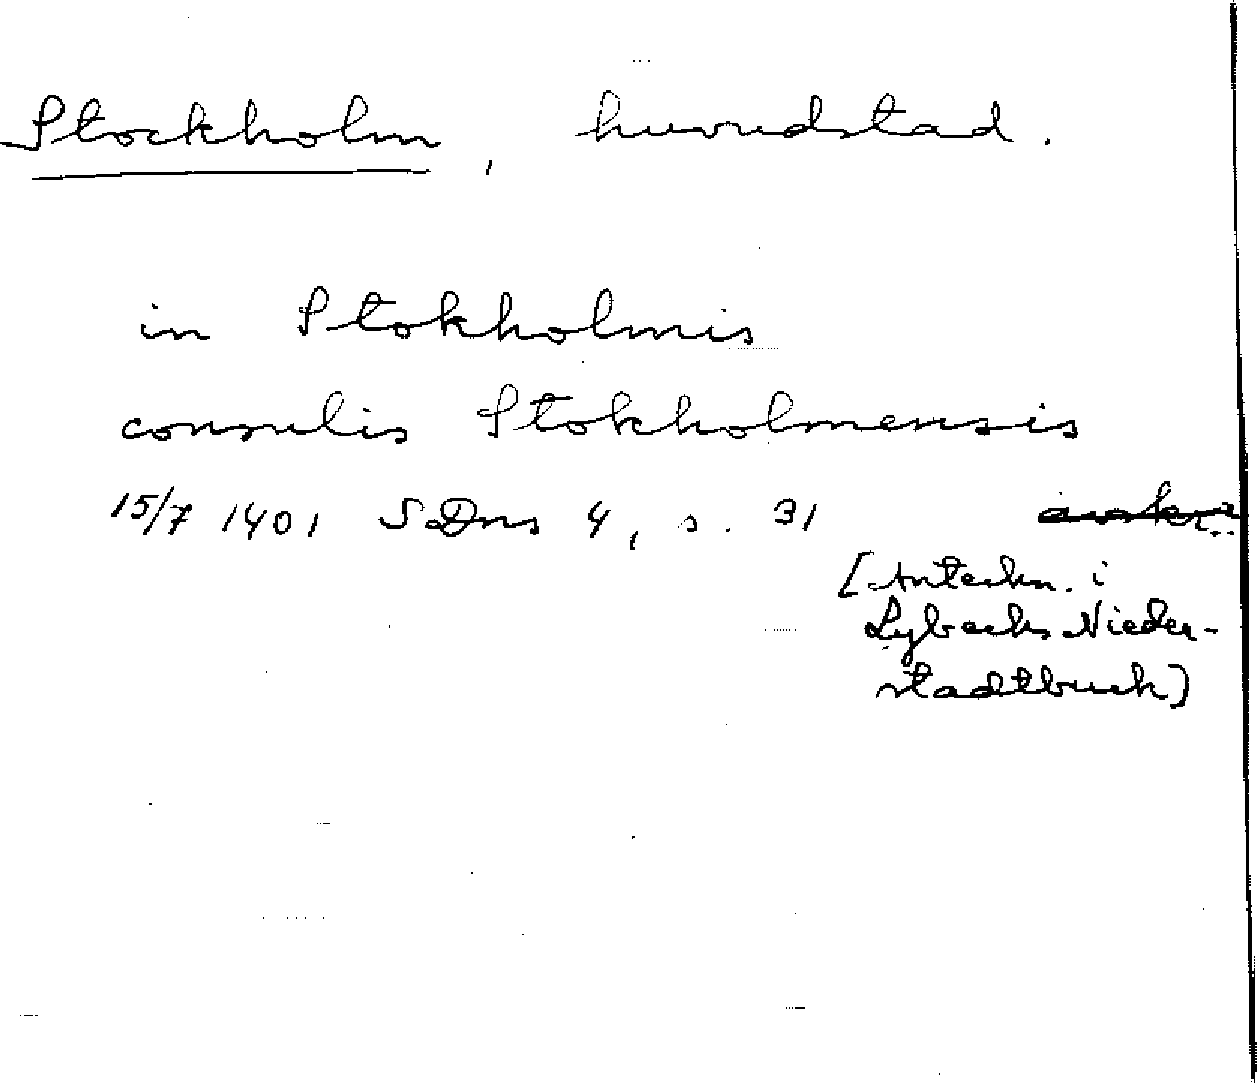 Stockholm, huvudstad.
in Stokholmis
consulis Stokholmensis
15/7 1401 SDns 4, s. 31
[Anteckn. i
Lybecks Nieder-
stadtbuch]